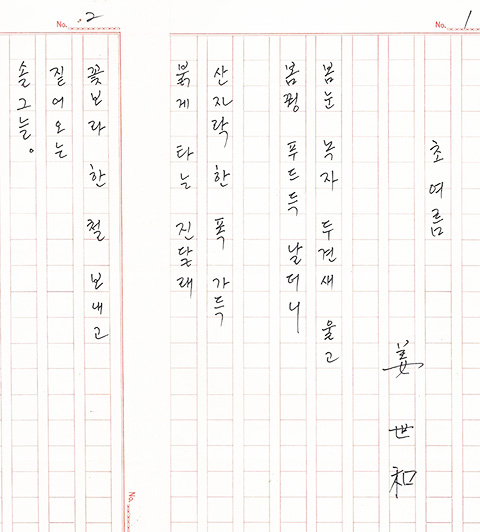 No. 1
초여름
姜世和
봄눈 녹자 두견새 울고
봄꿩 푸드득 날더니
산자락 한 폭 가득
붉게 타는 진달래
No. 2
꽃보라 한철 보내고
짙어오는
솔그늘。
No.